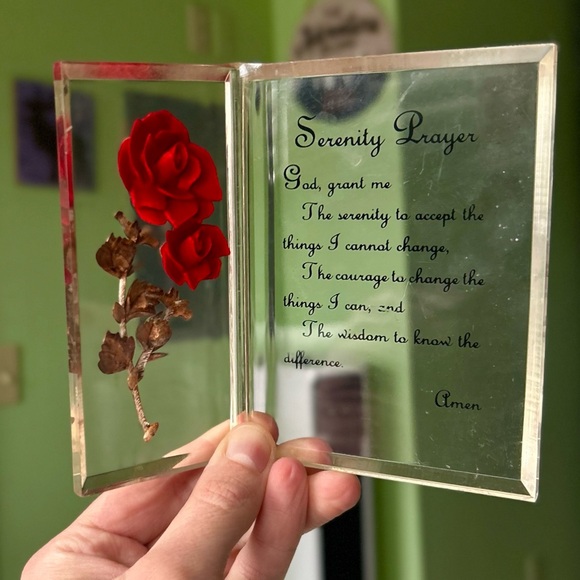 Serenity Prayer
God, grant me
The serenity to accept the
things I cannot change,
The courage to change the
things I can, and
The wisdom to know the
difference.
Amen